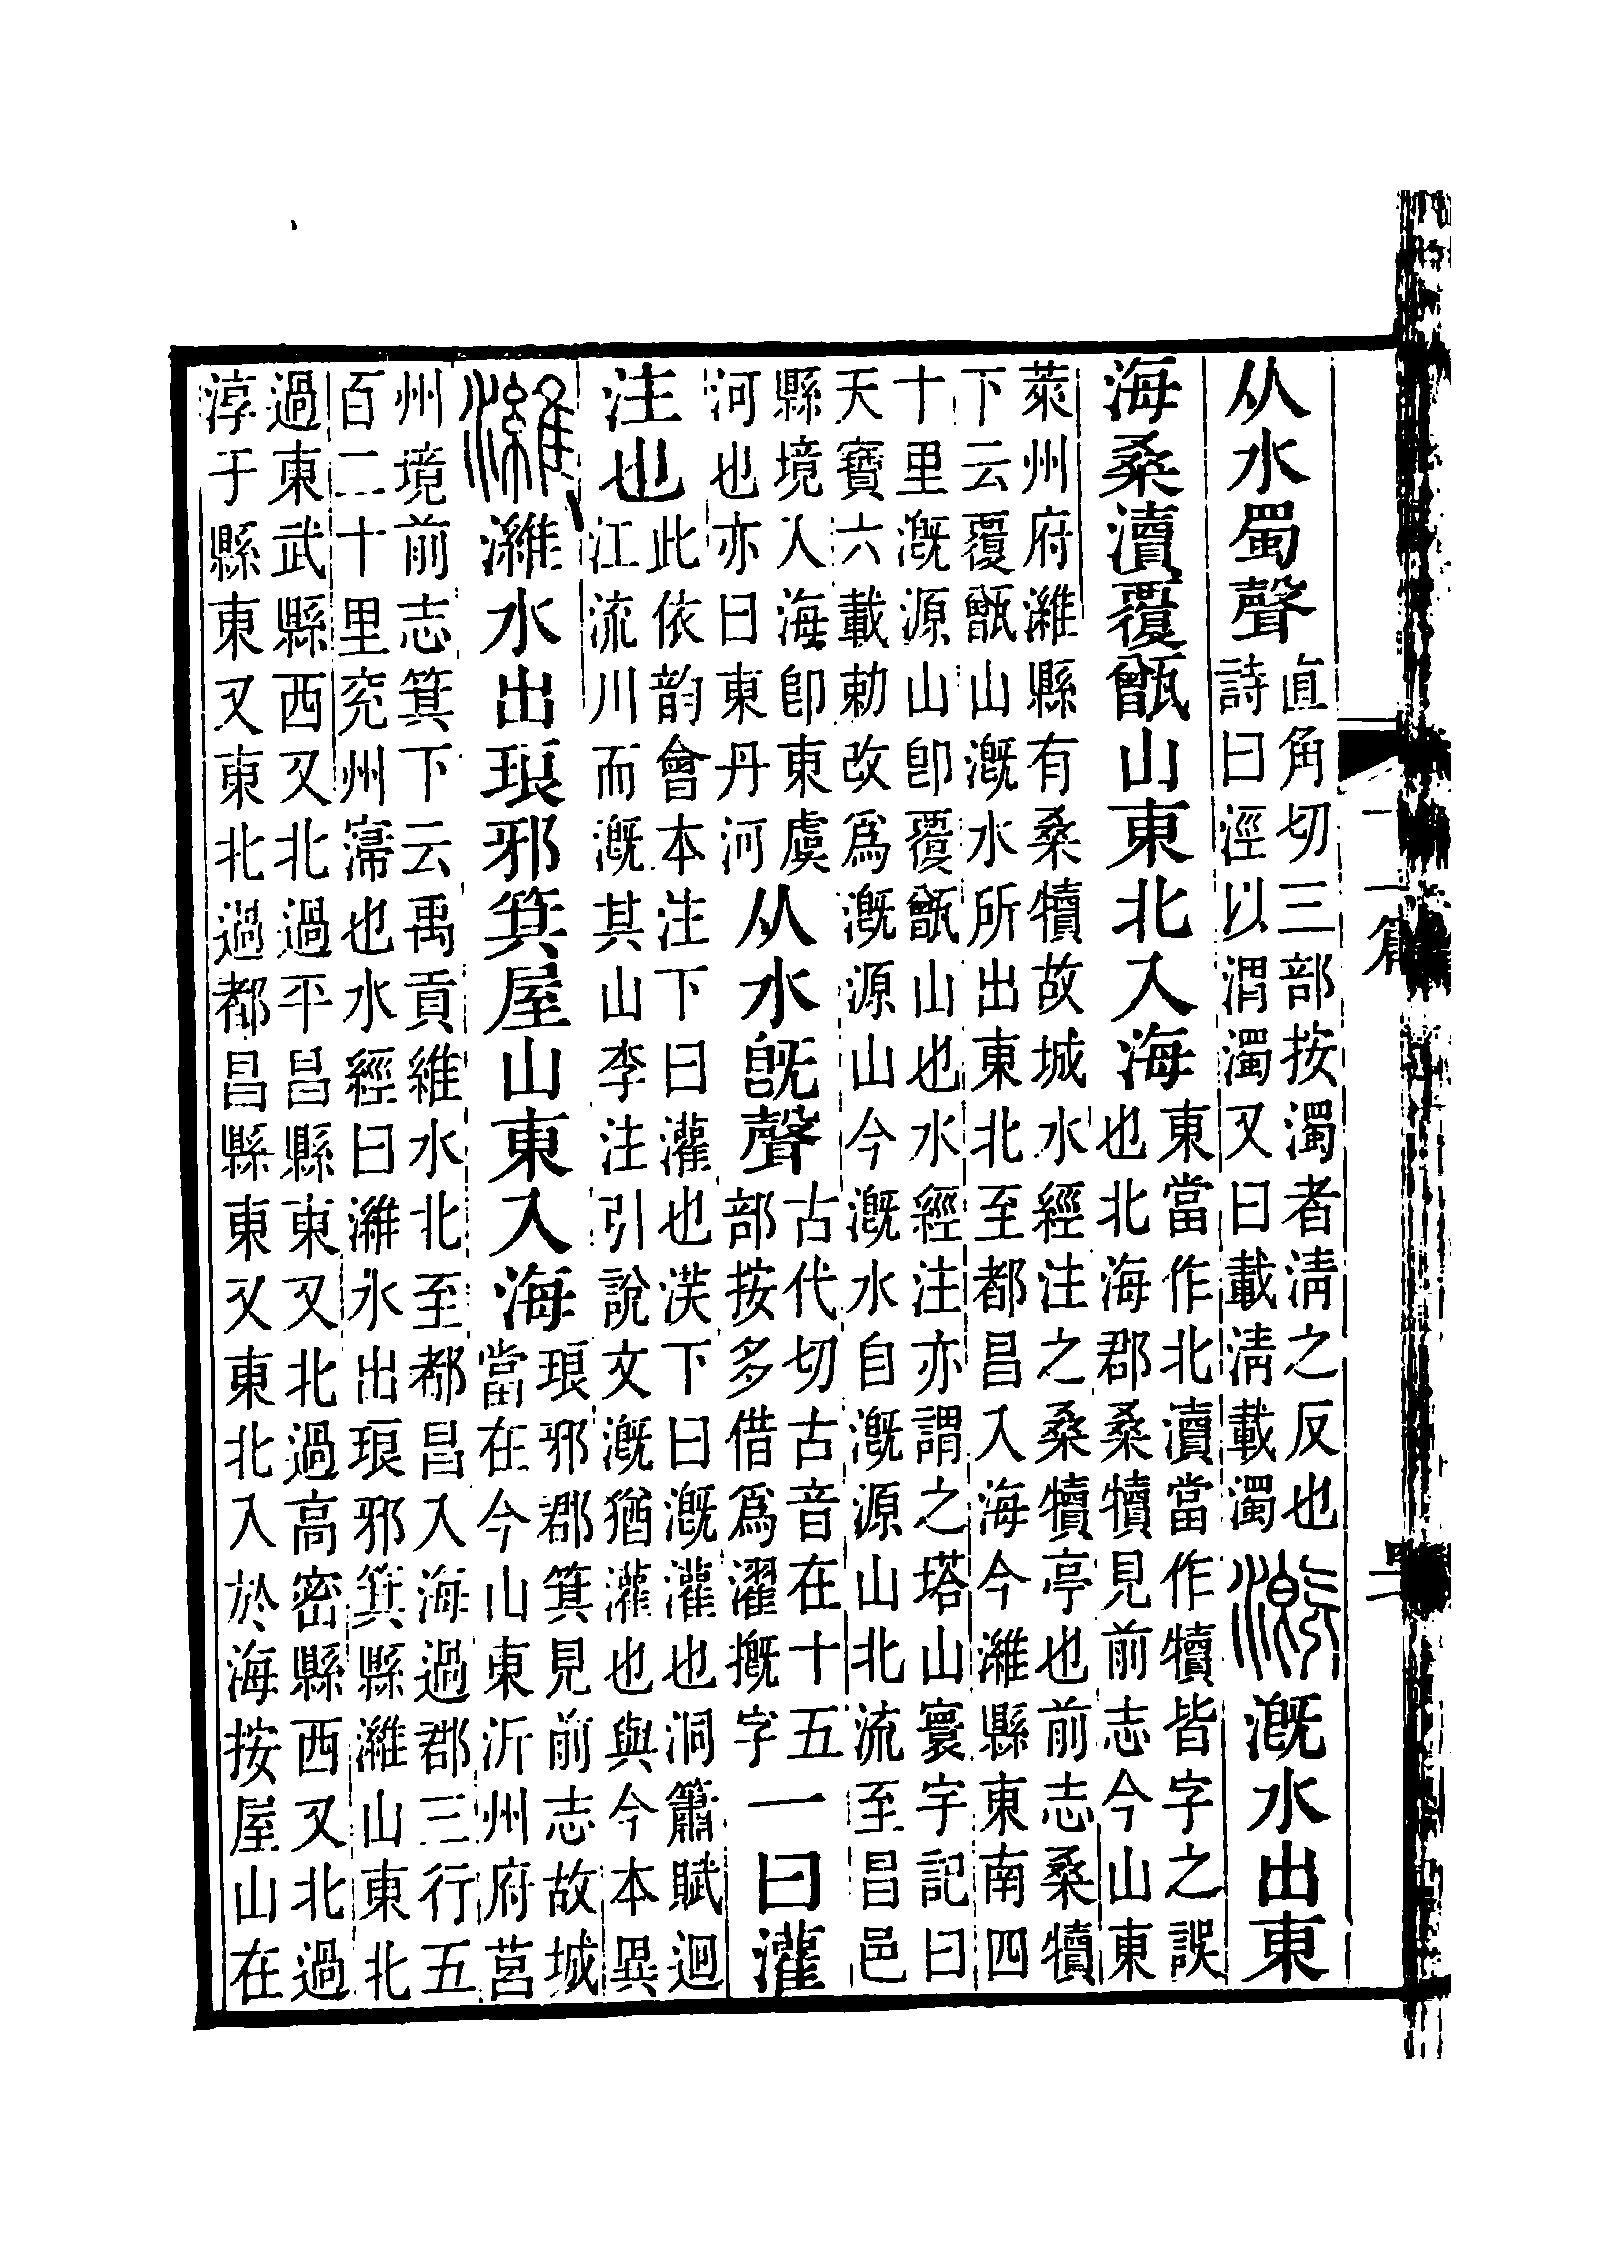 从水蜀聲直角切三部按濁者清之反也詩曰涇以渭濁又曰載清載濁溉溉水出東
海桑瀆覆甑山東北入海東當作北瀆當作犢皆字之誤也北海郡桑犢見前志今山東
萊州府濰縣有桑犢故城水經注之桑犢亭也前志桑犢
下云覆甑山溉水所出東北至都昌入海今濰縣東南四
十里溉源山卽覆甑山也水經注亦謂之塔山寰宇記曰
天寶六載勅改爲溉源山今溉水自溉源山北流至昌邑
縣境入海卽東虞河也亦曰東丹河从水旣聲古代切古音在十五部按多借爲濯摡字一曰灌
注也此依韵會本注下曰灌也渶下曰溉灌也洞簫賦迴江流川而溉其山李注引說文溉猶灌也與今本異
濰濰水出琅邪箕屋山東入海琅邪郡箕見前志故城當在今山東沂州府莒
州境前志箕下云禹貢維水北至都昌入海過郡三行五
百二十里兖州濅也水經曰濰水出琅邪箕縣濰山東北
過東武縣西又北過平昌縣東又北過高密縣西又北過
淳于縣東又東北過都昌縣東又東北入於海按屋山在